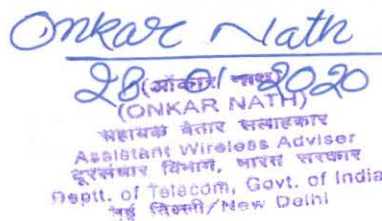 Onkar Nath
28-01-2020
(ओंकार नाथ)
(ONKAR NATH)
सहायक बेतार सलाहकार
Assistant Wireless Adviser
दूरसंचार विभाग, भारत सरकार
Deptt. of Telecom, Govt. of India
नई दिल्ली/New Delhi